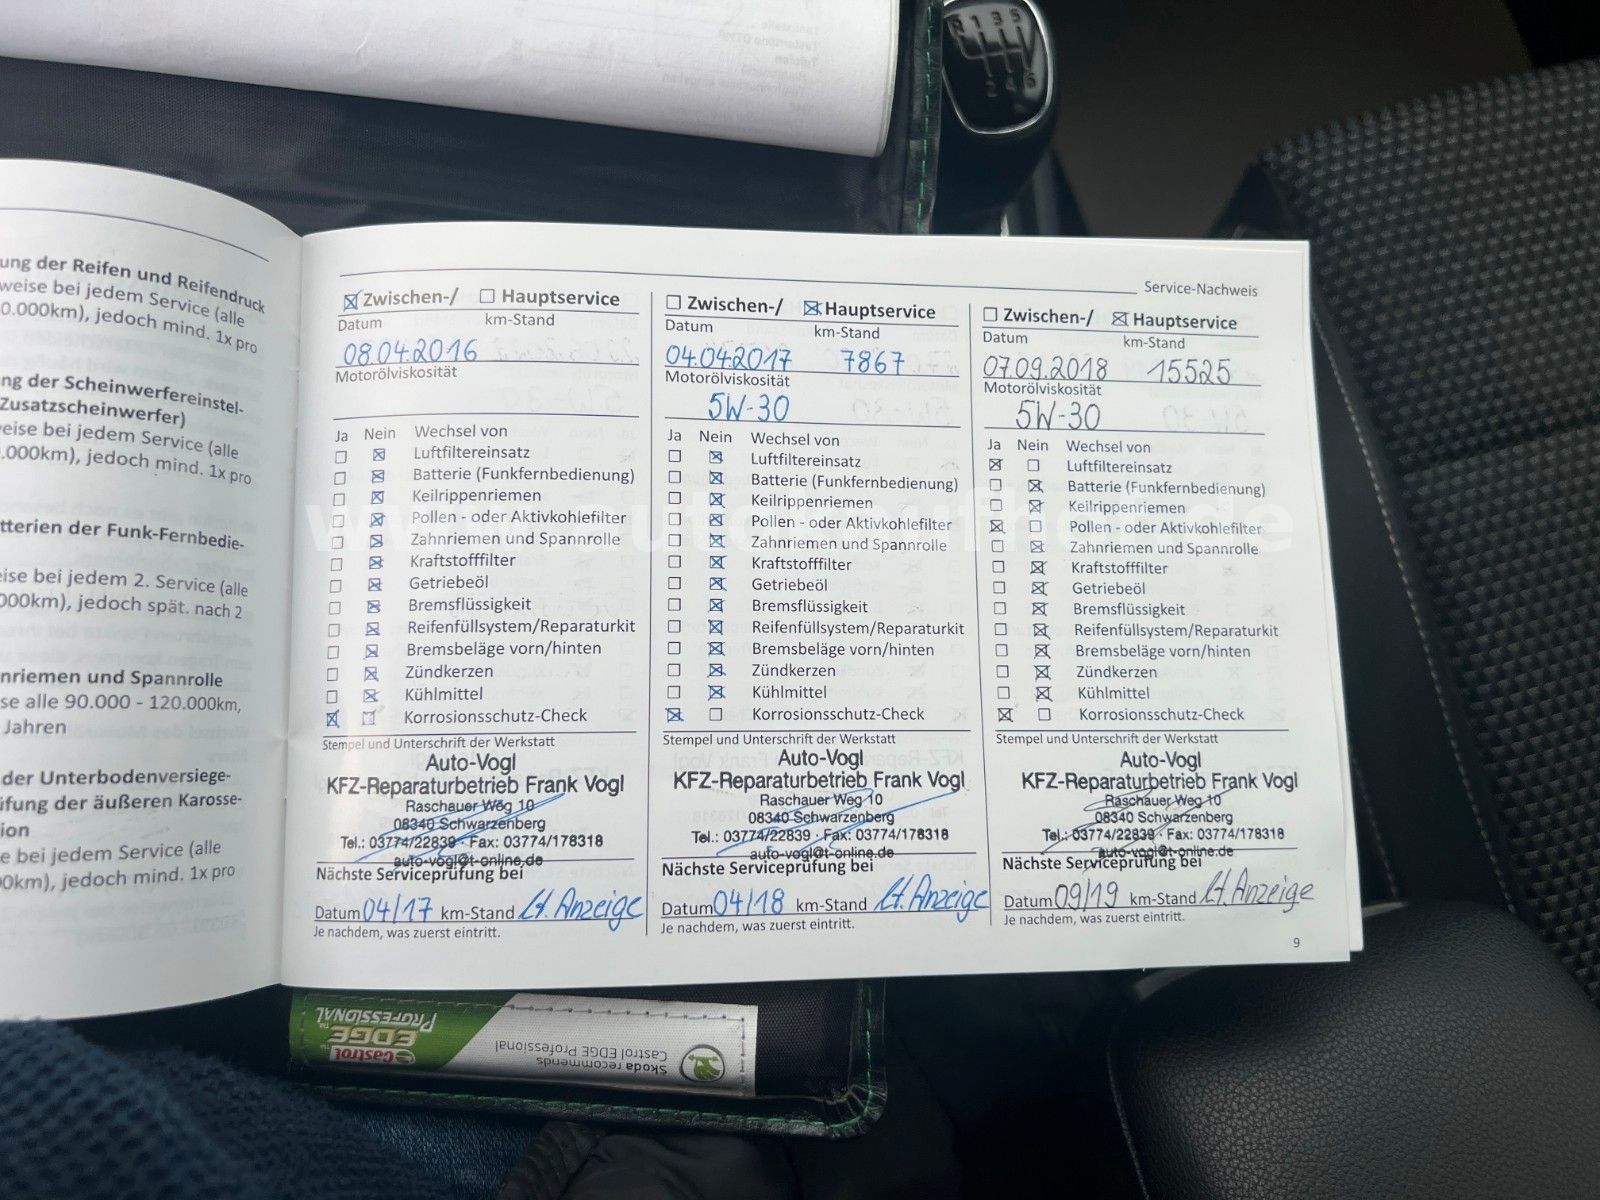 ung der Reifen und Reifendruck
weise bei jedem Service (alle
0.000km), jedoch mind. 1x pro
ng der Scheinwerfereinstel-
Zusatzscheinwerfer)
eise bei jedem Service (alle
.000km), jedoch mind. 1x pro
tterien der Funk-Fernbedie-
ise bei jedem 2. Service (alle
000km), jedoch spät. nach 2
nriemen und Spannrolle
se alle 90.000 - 120.000km,
Jahren
der Unterbodenversiege-
üfung der äußeren Karosse-
ion
e bei jedem Service (alle
0km), jedoch mind. 1x pro
Service-Nachweis
Zwischen-/ Hauptservice
Datum km-Stand
08.04.2016
Motorölviskosität
Ja Nein Wechsel von
Luftfiltereinsatz
Batterie (Funkfernbedienung)
Keilrippenriemen
Pollen - oder Aktivkohlefilter
Zahnriemen und Spannrolle
Kraftstofffilter
Getriebeöl
Bremsflüssigkeit
Reifenfüllsystem/Reparaturkit
Bremsbeläge vorn/hinten
Zündkerzen
Kühlmittel
Korrosionsschutz-Check
Stempel und Unterschrift der Werkstatt
Auto-Vogl
KFZ-Reparaturbetrieb Frank Vogl
Raschauer Weg 10
08340 Schwarzenberg
Tel.: 03774/22839 · Fax: 03774/178318
auto-vogl@t-online.de
Nächste Serviceprüfung bei
Datum 04/17 km-Stand Lt. Anzeige
Je nachdem, was zuerst eintritt.
Zwischen-/ Hauptservice
Datum km-Stand
04.04.2017 7867
Motorölviskosität
5W-30
Ja Nein Wechsel von
Luftfiltereinsatz
Batterie (Funkfernbedienung)
Keilrippenriemen
Pollen - oder Aktivkohlefilter
Zahnriemen und Spannrolle
Kraftstofffilter
Getriebeöl
Bremsflüssigkeit
Reifenfüllsystem/Reparaturkit
Bremsbeläge vorn/hinten
Zündkerzen
Kühlmittel
Korrosionsschutz-Check
Stempel und Unterschrift der Werkstatt
Auto-Vogl
KFZ-Reparaturbetrieb Frank Vogl
Raschauer Weg 10
08340 Schwarzenberg
Tel.: 03774/22839 · Fax: 03774/178318
auto-vogl@t-online.de
Nächste Serviceprüfung bei
Datum 04/18 km-Stand Lt. Anzeige
Je nachdem, was zuerst eintritt.
Zwischen-/ Hauptservice
Datum km-Stand
07.09.2018 15525
Motorölviskosität
5W-30
Ja Nein Wechsel von
Luftfiltereinsatz
Batterie (Funkfernbedienung)
Keilrippenriemen
Pollen - oder Aktivkohlefilter
Zahnriemen und Spannrolle
Kraftstofffilter
Getriebeöl
Bremsflüssigkeit
Reifenfüllsystem/Reparaturkit
Bremsbeläge vorn/hinten
Zündkerzen
Kühlmittel
Korrosionsschutz-Check
Stempel und Unterschrift der Werkstatt
Auto-Vogl
KFZ-Reparaturbetrieb Frank Vogl
Raschauer Weg 10
08340 Schwarzenberg
Tel.: 03774/22839 · Fax: 03774/178318
auto-vogl@t-online.de
Nächste Serviceprüfung bei
Datum 09/19 km-Stand Lt. Anzeige
Je nachdem, was zuerst eintritt.
9
Škoda recommends
Castrol EDGE Professional
Castrol
EDGE
PROFESSIONAL
R 1 3 5
2 4 6